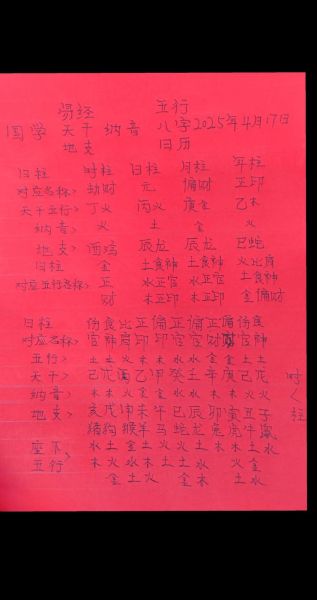 易经 五行
国学 天干 纳音 八字2025年4月17日
地支 日历
日柱 时柱 日柱 月柱 年柱
对应名称> 劫财 元 偏财 正印
天干五行> 丁火 丙火 庚金 乙木
纳音> 火 土 金 火
地支> 酉鸡 辰龙 辰龙 巳蛇
日柱 金 土食神 土食神 火比肩
对应五行名称> 正 水正官 水正官 土食神
财 木正印 木正印 金偏财
日柱 伤食比正偏正偏正偏伤食
对应名称> 官神肩印印官官财财官神
五行> 土土火木木水水金金土土
天干> 己戊丙乙甲癸壬辛庚己戊
纳音> 木木火金金水水木木火火
地支> 亥戌申未午巳辰卯寅丑子
猪狗猴羊马蛇龙兔虎牛鼠
时柱
座下 水土金土火火土木木土水
五行> 木火水火土土水火金
金土火金木土水